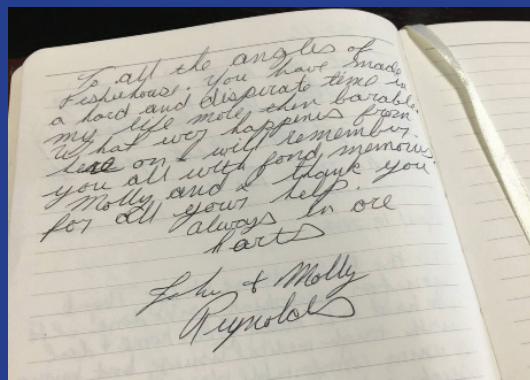 To all the angles of
Fisherhouse. You have made
a hard and disperate time in
my life more then barable.
What evr happenes from
here on I will remember
you all with fond memories
Molly and I thank you
for all your help.
always in ore
harts
John + Molly
Reynolds